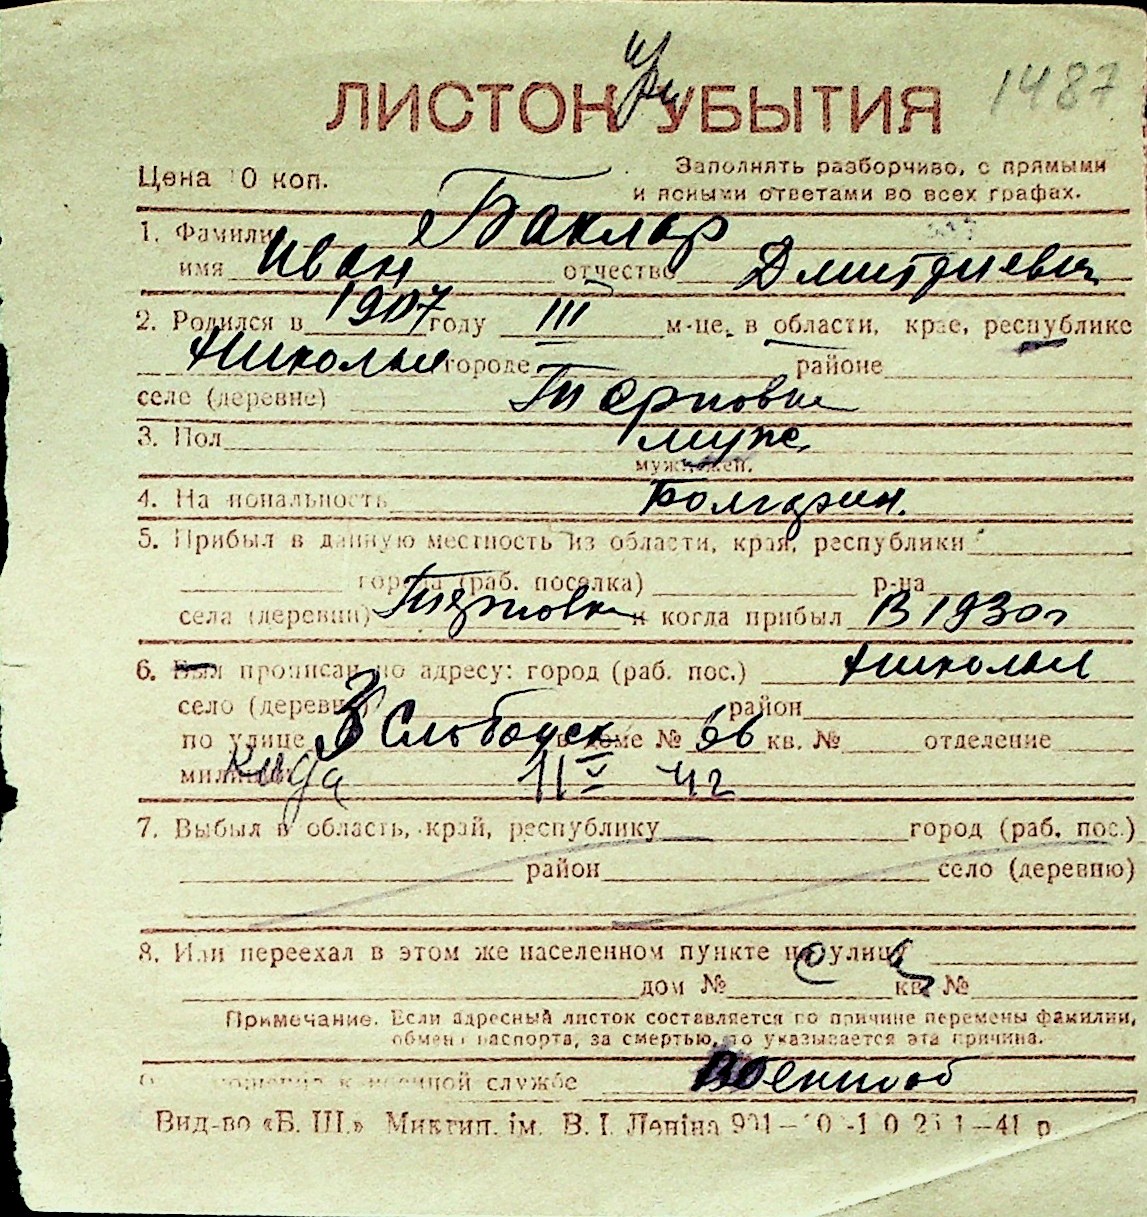 1487
при
ЛИСТОК УБЫТИЯ
Цена 10 коп.
Заполнять разборчиво, с прямыми
и ясными ответами во всех графах.
1. Фамилия Баклар
имя Иван отчество Дмитриевич
2. Родился в 1907 году III м-це, в области, крае, республике
Николаев городе районе
селе (деревне) Терновке
3. Пол муж.
муж. жен.
4. Национальность Болгарин.
5. Прибыл в данную местность из области, края, республики
города (раб. поселка) р-на
села (деревни) Терновки и когда прибыл В 1930 г
6. Был прописан по адресу: город (раб. пос.) Николаев
село (деревня) район
по улице 3 Слободск в доме № 66 кв. № отделение
милиции
куда 11 V 42
7. Выбыл в область, край, республику город (раб. пос.)
район село (деревню)
8. Или переехал в этом же населенном пункте на улицу
дом № кв. №
Примечание. Если адресный листок составляется по причине перемены фамилии,
обмена паспорта, за смертью, то указывается эта причина.
9. Отношение к военной службе Военнооб
Вид-во «Б. Ш.» Миктип. ім. В. І. Леніна